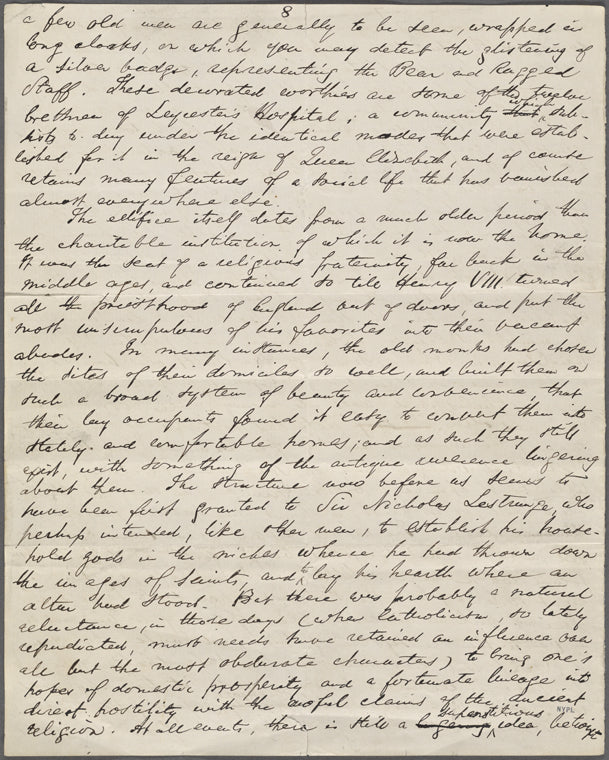 8
a few old men are generally to be seen, wrapped in
long cloaks, on which you may detect the glistening of
a silver badge, representing the Bear and Ragged
Staff. These decorated worthies are some of the twelve
brethren of Leycester's Hospital; a community which sub-
sists to-day under the identical modes that were estab-
lished for it in the reign of Queen Elizabeth, and of course
retains many features of a social life that has vanished
almost everywhere else.
The edifice itself dates from a much older period than
the charitable institution of which it is now the home.
It was the seat of a religious fraternity far back in the
middle ages, and continued so till Henry VIII turned
all the priesthood of England out of doors, and put the
most unscrupulous of his favorites into their vacant
abodes. In many instances, the old monks had chosen
the sites of their domiciles so well, and built them on
such a broad system of beauty and convenience, that
their lay occupants found it easy to convert them into
stately and comfortable homes; and as such they still
exist, with something of the antique reverence lingering
about them. The structure now before us seems to
have been first granted to Sir Nicholas Lestrange, who
perhaps intended, like other men, to establish his house-
hold gods in the niches whence he had thrown down
the images of saints, and to lay his hearth where an
altar had stood. But there was probably a natural
reluctance, in those days (when Catholicism, so lately
repudiated, must needs have retained an influence over
all but the most obdurate characters) to bring one's
hopes of domestic prosperity and a fortunate lineage into
direct hostility with the awful claims of the ancient
religion. At all events, there is still a superstitious idea, betwixt
NYPL